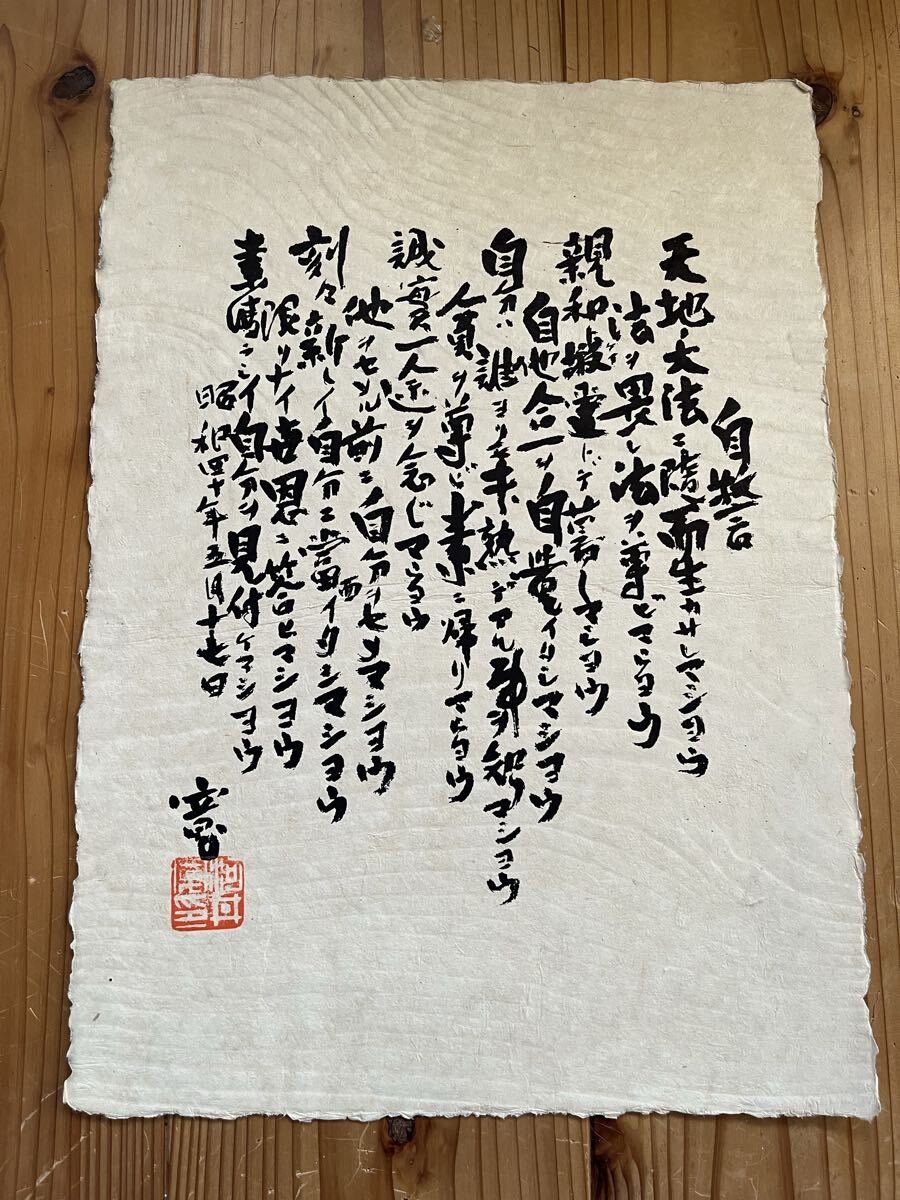 自誓
天地大法ニ随而生カサレマショウ
法ヲ畏レ法ヲ尊ビマショウ
親和 マショウ
自他合一ヲ自覚イタシマショウ
自分ハ誰ヨリモ未熟デアル事ヲ知リマショウ
人貫ヲ尊ビ素ニ帰リマショウ
誠實一途ヲ念じマショウ
他ヲセメル前ニ自分ヲセメマショウ
刻々新しイ自分ニ当面イタシマショウ
限リナイ ヒマショウ
素晴ラシイ自分ヲ見付ケマショウ
昭和四十年五月十七日